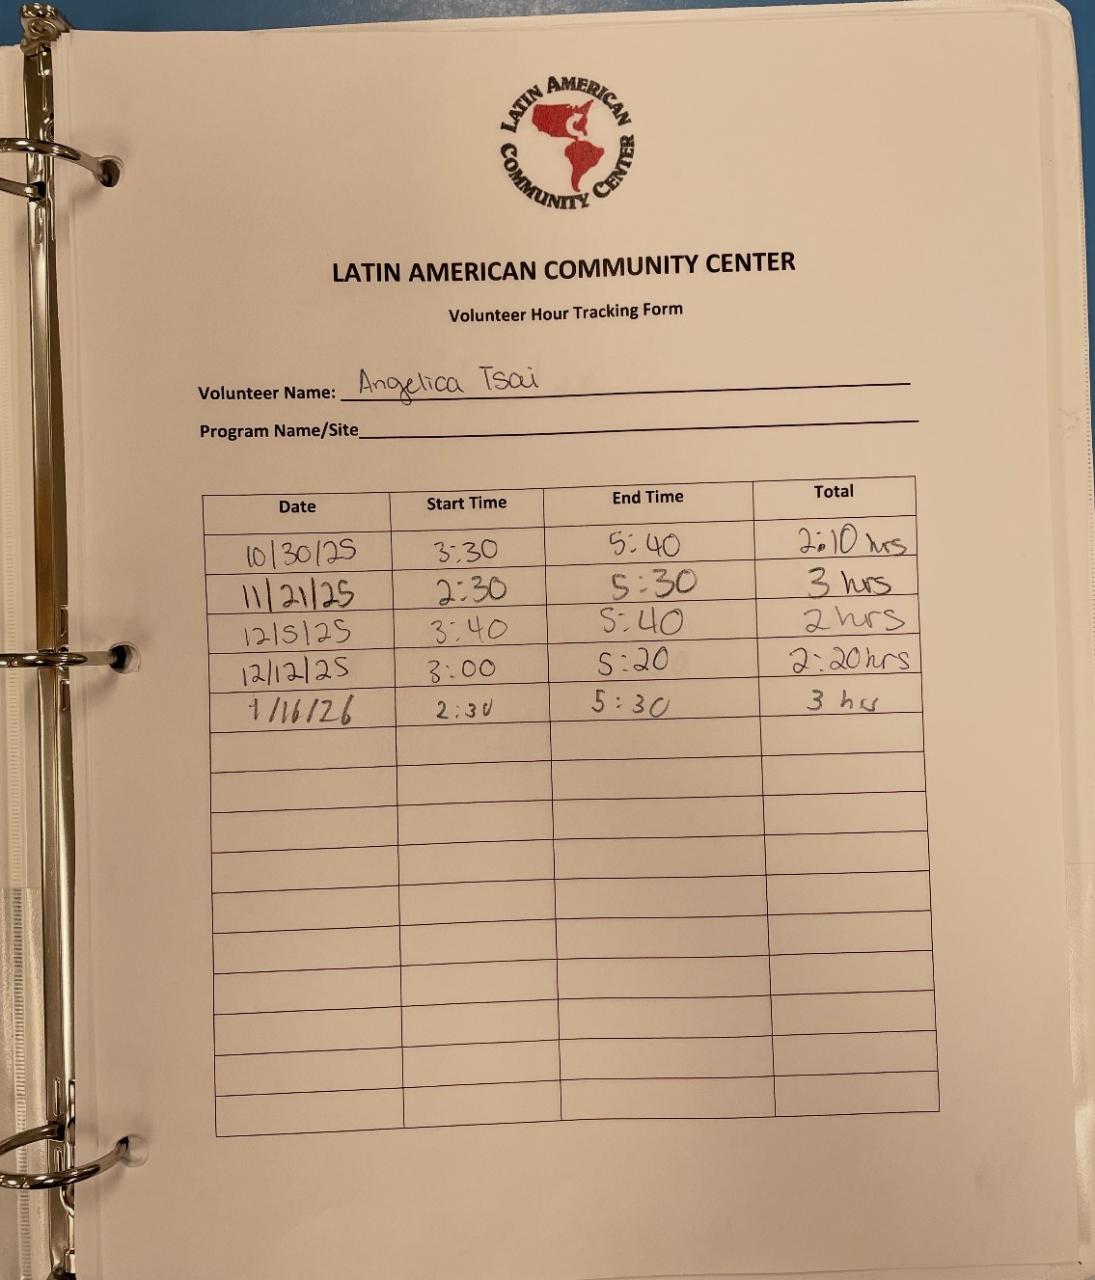 LATIN AMERICAN COMMUNITY CENTER
LATIN AMERICAN COMMUNITY CENTER
Volunteer Hour Tracking Form
Volunteer Name: Angelica Tsai
Program Name/Site
Date Start Time End Time Total
10/30/25 3:30 5:40 2:10 hrs
11/21/25 2:30 5:30 3 hrs
12/5/25 3:40 5:40 2 hrs
12/12/25 3:00 5:20 2:20 hrs
1/16/26 2:30 5:30 3 hrs